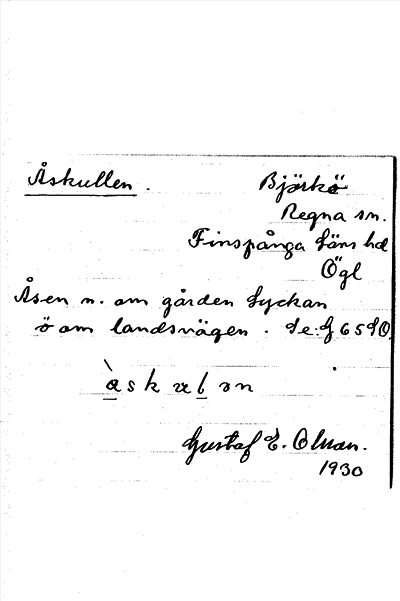 Åskullen. Björkö
Regna sn.
Finspånga läns hd
Ögl
Åsen n. om gården Lyckan
ö om landsvägen. Se:
àskulən
Gustaf E. Olsson.
1930